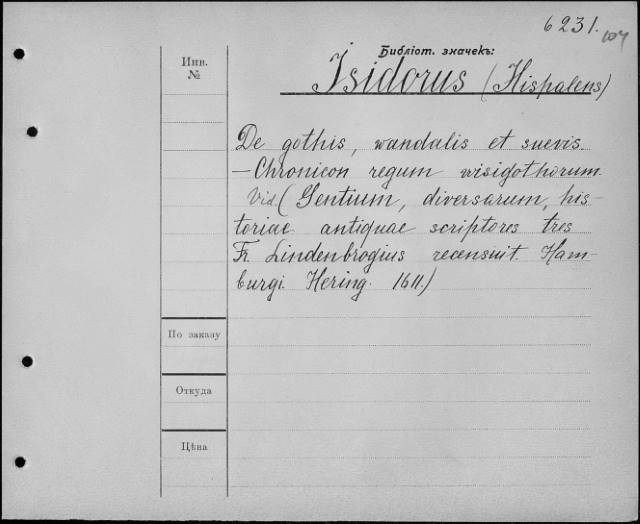 6231.
104
Библіот. значекъ:
Инв.
№
Isidorus (Hispalens)
De gothis, wandalis et suevis.
– Chronicon regum wisigothorum
Vid. (Gentium, diversarum, his-
toriae antiquae scriptores tres
Fr. Lindenbrogius recensuit. Ham-
burgi. Hering. 1611.)
По заказу
Откуда
Цѣна